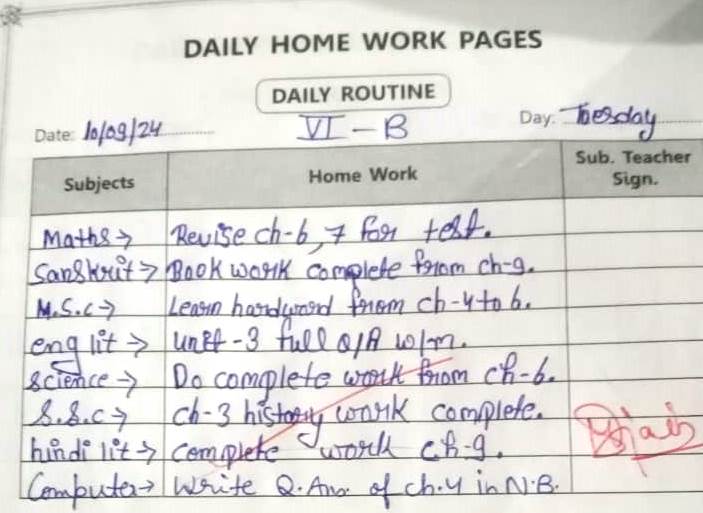 DAILY HOME WORK PAGES
DAILY ROUTINE
Date: 10/09/24 VI - B Day: Tuesday
Subjects Home Work Sub. Teacher Sign.
Maths → Revise ch-6, 7 for test.
Sanskrit → Book work complete from ch-9.
M.S.C → Learn hardword from ch-4 to 6.
eng lit → unit-3 full Q/A w/m.
science → Do complete work from ch-6.
S.S.C → ch-3 history work complete.
hindi lit → complete work ch-9.
Computer → Write Q.An. of ch.4 in N.B.